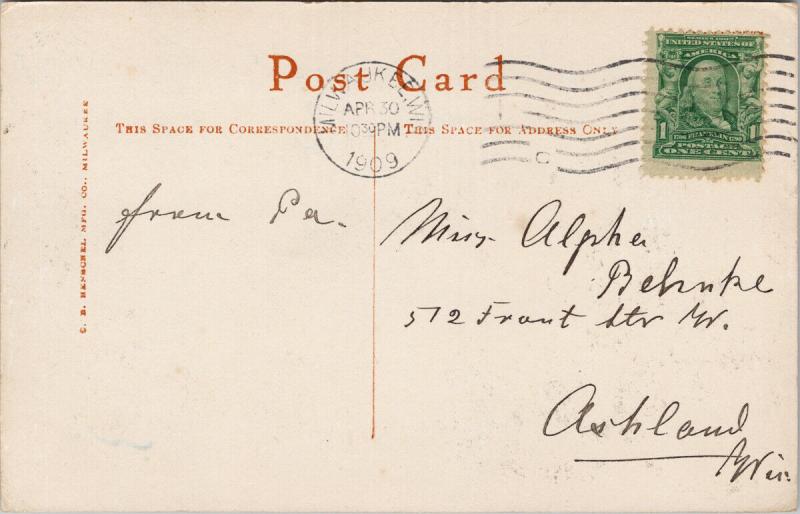 Post Card
THIS SPACE FOR CORRESPONDENCE
THIS SPACE FOR ADDRESS ONLY
MILWAUKEE, WI
APR 30
1030 PM
1909
UNITED STATES OF
AMERICA
1 FRANKLIN 1
POSTAGE
ONE CENT
C
E. C. HENSCHEL MFG. CO., MILWAUKEE
from Pa.
Miss Alpha
Behnke
512 Front Str W.
Ashland
Wis.